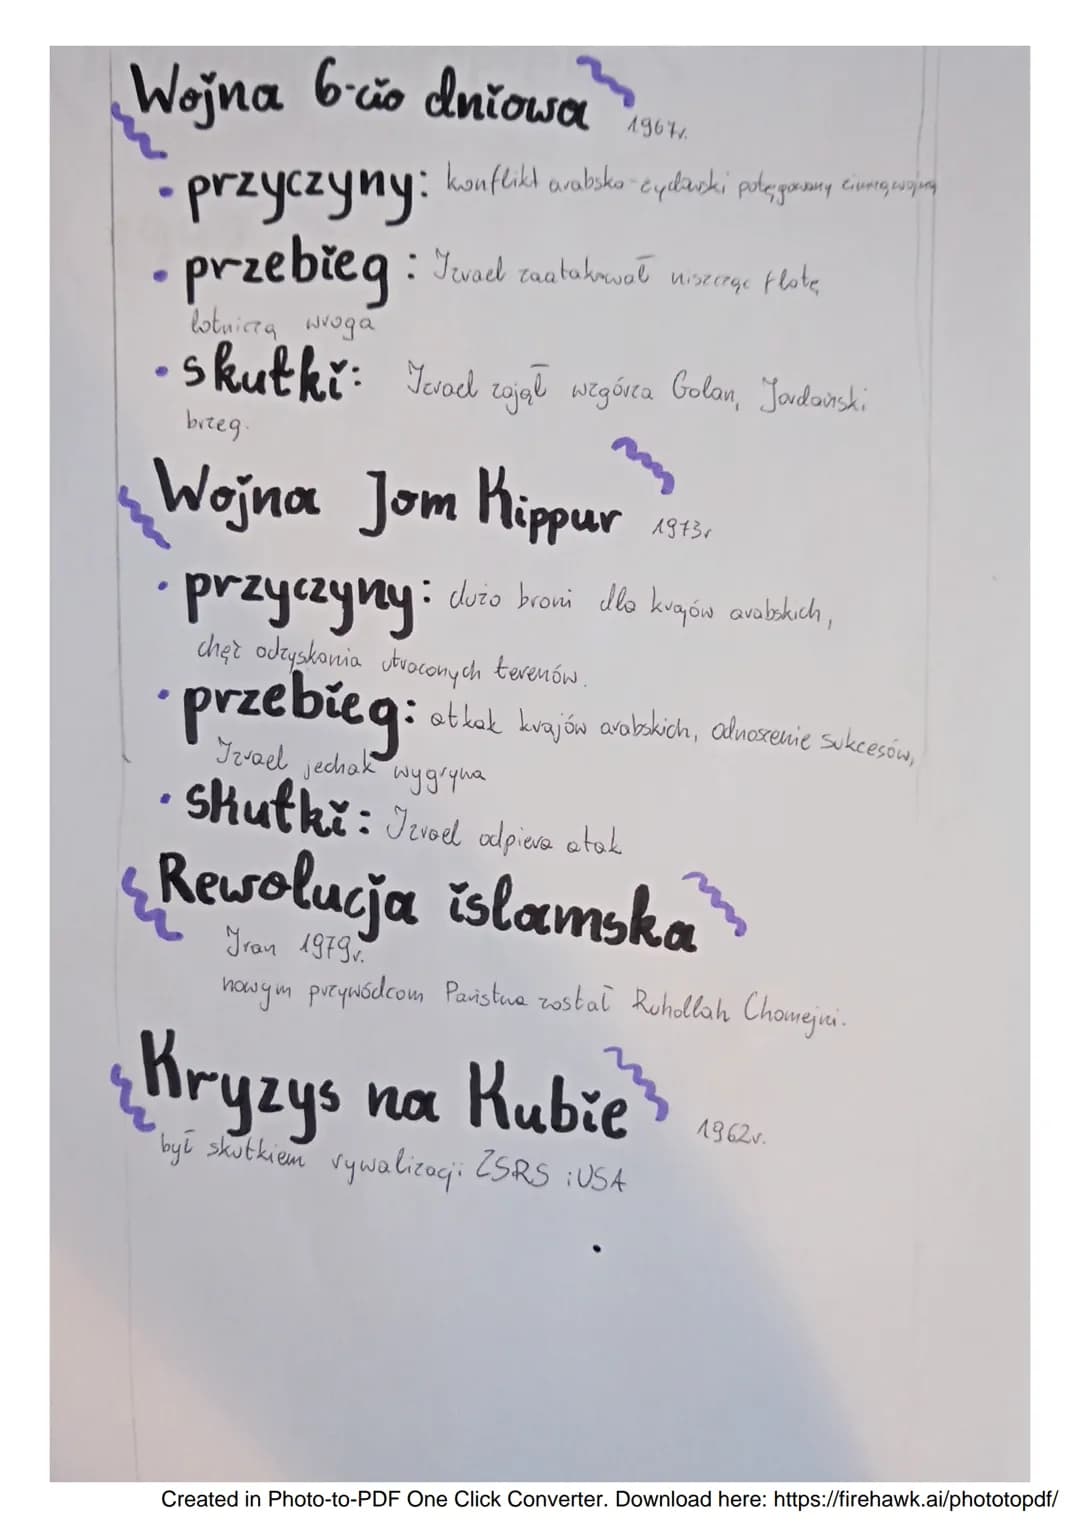 Wojna 6-cio dniowa 1967r.
• przyczyny: konflikt arabsko-żydowski potęgowany zimną wojną
• przebieg: Izrael zaatakował niszcząc flotę
lotniczą wroga
• skutki: Izrael zajął wzgórza Golan, Jordański
brzeg.
Wojna Jom Kippur 1973r
• przyczyny: dużo broni dla krajów arabskich,
chęć odzyskania utraconych terenów.
• przebieg: atkak krajów arabskich, odnoszenie sukcesów,
Izrael jednak wygrywa
• skutki: Izrael odpiera atak
Rewolucja islamska
Iran 1979r.
nowym przywódcom Państwa został Ruhollah Chomejni.
Kryzys na Kubie 1962r.
był skutkiem rywalizacji ZSRS i USA
Created in Photo-to-PDF One Click Converter. Download here: https://firehawk.ai/phototopdf/